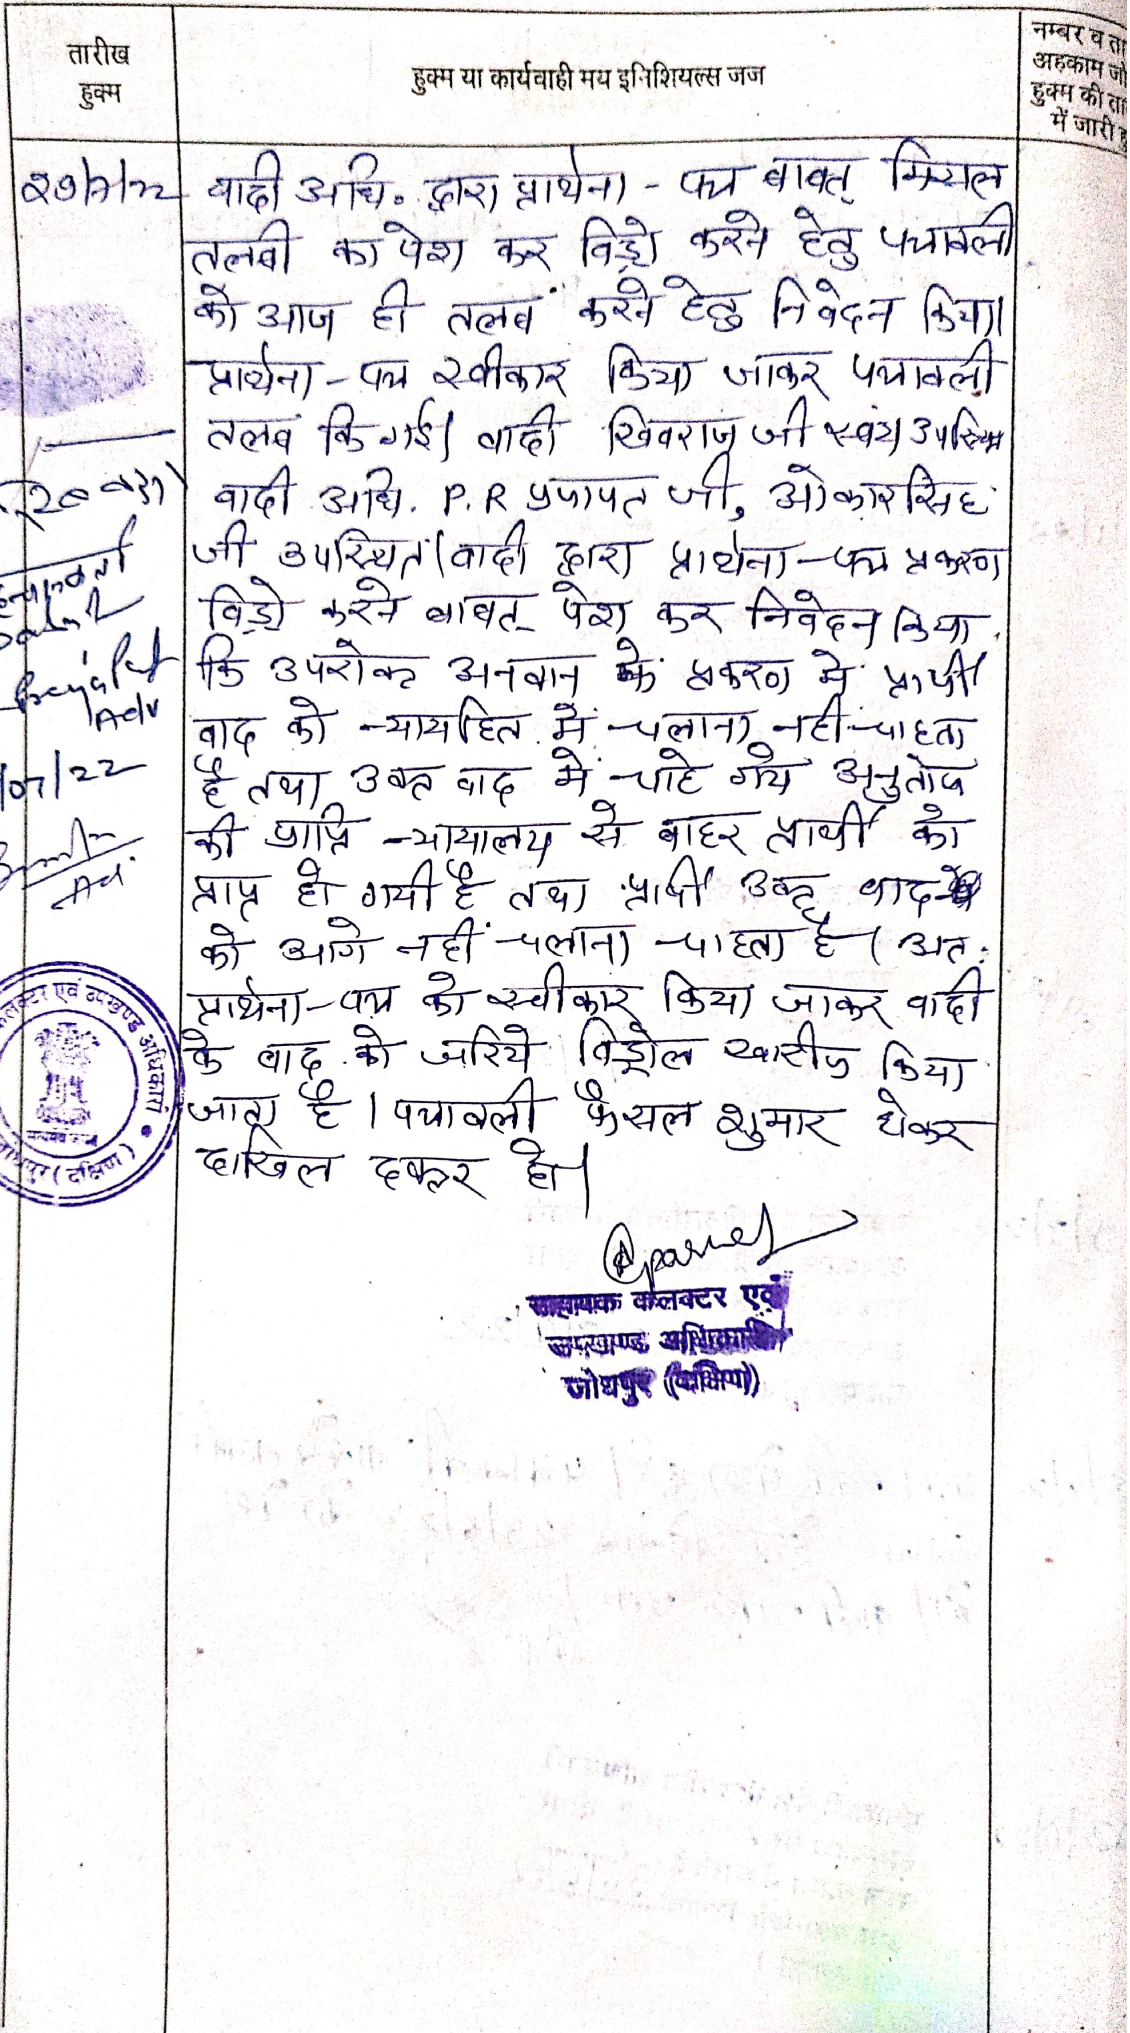 तारीख
हुक्म
हुक्म या कार्यवाही मय इनिशियल्स जज
नम्बर व ता
अहकाम जो
हुक्म की ता
में जारी हु
वादी अधि. द्वारा प्रार्थना-पत्र बाबत् मिसल
तलबी का पेश कर विड्रो करने हेतु पत्रावली
को आज ही तलब करने हेतु निवेदन किया।
प्रार्थना-पत्र स्वीकार किया जाकर पत्रावली
तलब कि गई। वादी खिवराज जी स्वंय उपस्थित
वादी अधि. P.R प्रजापत जी, ओकारसिंह
जी उपस्थित। वादी द्वारा प्रार्थना-पत्र प्रकरण
विड्रो करने बाबत् पेश कर निवेदन किया
कि उपरोक्त अनवान के प्रकरण में प्रार्थी
वाद को न्यायहित में चलाना नहीं चाहता
है तथा उक्त वाद में चाहे गये अनुतोष
की प्राप्ति न्यायालय से बाहर प्रार्थी को
प्राप्त हो गयी है तथा प्रार्थी उक्त वाद
को आगे नहीं चलाना चाहता है। अत:
प्रार्थना-पत्र को स्वीकार किया जाकर वादी
के वाद को जरिये विड्रोल खारीज किया
जाता है। पत्रावली फैसल शुमार होकर
दाखिल दफ्तर हो।
/07/22
Adv
सहायक कलक्टर एवं
उपखण्ड अधिकारी
जोधपुर (दक्षिण)
लक्टर एवं उपखण्ड अधिकारी
जोधपुर (दक्षिण)